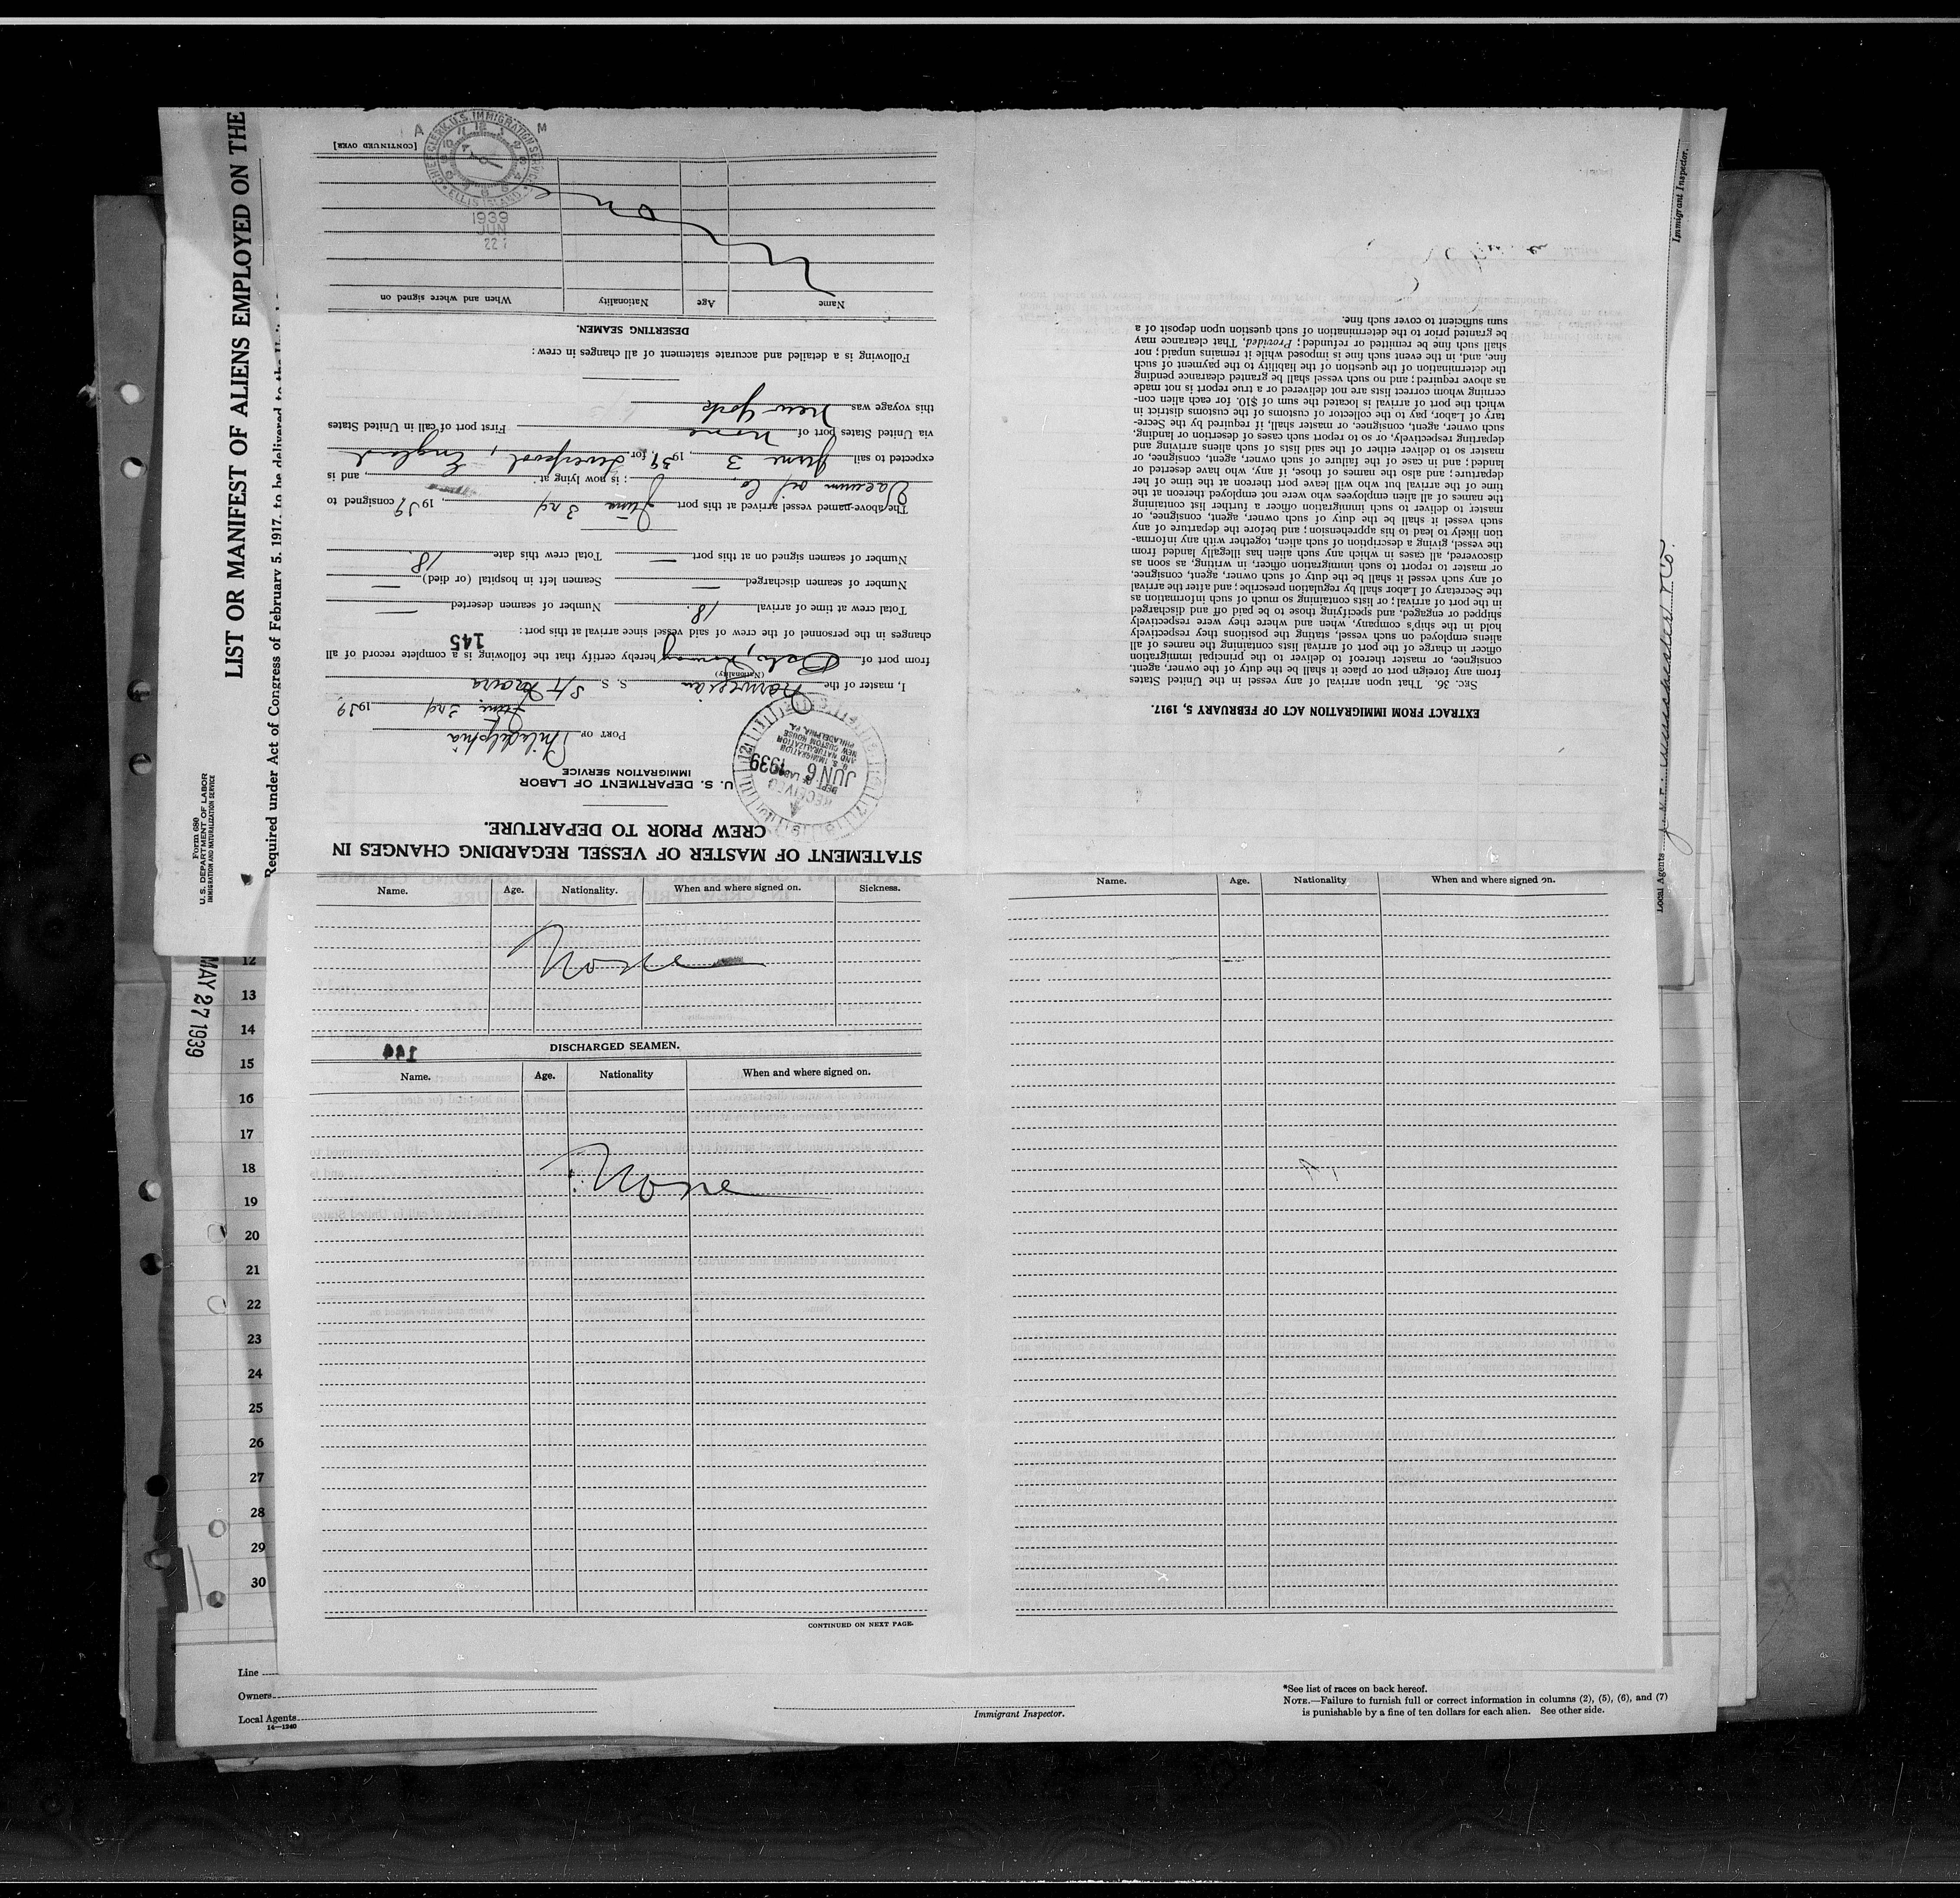 STATEMENT OF MASTER OF VESSEL REGARDING CHANGES IN
CREW PRIOR TO DEPARTURE.
U. S. DEPARTMENT OF LABOR
IMMIGRATION SERVICE
RECEIVED
JUN 6 1939
DEPT. OF LABOR
U. S. IMMIGRATION
AND NATURALIZATION
NEW CUSTOM HOUSE
PHILADELPHIA, PA.
PORT OF Philadelphia
June 3rd 1939
I, master of the Norwegian S. S.
(Nationality)
from port of Oslo, Norway hereby certify that the following is a complete record of all
145
changes in the personnel of the crew of said vessel since arrival at this port:
Total crew at time of arrival 18. Number of seamen deserted —
Number of seamen discharged — Seamen left in hospital (or died) —
Number of seamen signed on at this port — Total crew this date 18.
The above-named vessel arrived at this port June 3rd, 1939 consigned to
Vacuum Oil Co.; is now lying at , and is
expected to sail June 3, 1939, for Liverpool, England
via United States port of none First port of call in United States
this voyage was New York
Following is a detailed and accurate statement of all changes in crew:
DESERTING SEAMEN.
Name Age Nationality When and where signed on
None
[CONTINUED OVER]
CHIEF CLERK, U.S. IMMIGRATION SERVICE
ELLIS ISLAND
A M
1939
JUN
22
EXTRACT FROM IMMIGRATION ACT OF FEBRUARY 5, 1917.
SEC. 36. That upon arrival of any vessel in the United States
from any foreign port or place it shall be the duty of the owner, agent,
consignee, or master thereof to deliver to the principal immigration
officer in charge of the port of arrival lists containing the names of all
aliens employed on such vessel, stating the positions they respectively
hold in the ship's company, when and where they were respectively
shipped or engaged, and specifying those to be paid off and discharged
in the port of arrival; or lists containing so much of such information as
the Secretary of Labor shall by regulation prescribe; and after the arrival
of any such vessel it shall be the duty of such owner, agent, consignee,
or master to report to such immigration officer, in writing, as soon as
discovered, all cases in which any such alien has illegally landed from
the vessel, giving a description of such alien, together with any informa-
tion likely to lead to his apprehension; and before the departure of any
such vessel it shall be the duty of such owner, agent, consignee, or
master to deliver to such immigration officer a further list containing
the names of all alien employees who were not employed thereon at the
time of the arrival but who will leave port thereon at the time of her
departure; and also the names of those, if any, who have deserted or
landed; and in case of the failure of such owner, agent, consignee, or
master so to deliver either of the said lists of such aliens arriving and
departing respectively, or so to report such cases of desertion or landing,
such owner, agent, consignee, or master, shall, if required by the Secre-
tary of Labor, pay to the collector of customs of the customs district in
which the port of arrival is located the sum of $10. for each alien con-
cerning whom correct lists are not delivered or a true report is not made
as above required; and no such vessel shall be granted clearance pending
the determination of the question of the liability to the payment of such
fine, and, in the event such fine is imposed while it remains unpaid; nor
shall such fine be remitted or refunded; Provided, That clearance may
be granted prior to the determination of such question upon deposit of a
sum sufficient to cover such fine.
Form 680
U.S. DEPARTMENT OF LABOR
IMMIGRATION AND NATURALIZATION SERVICE
LIST OR MANIFEST OF ALIENS EMPLOYED ON THE
Required under Act of Congress of February 5, 1917, to be delivered to the
Immigrant Inspector.
Local Agents
Name. Age. Nationality. When and where signed on. Sickness.
None
144
DISCHARGED SEAMEN.
Name. Age. Nationality When and where signed on.
None
CONTINUED ON NEXT PAGE.
Name. Age. Nationality When and where signed on.
MAY 27 1939
12
13
14
15
16
17
18
19
20
21
22
23
24
25
26
27
28
29
30
Line
Owners
Local Agents
14—1240
Immigrant Inspector.
*See list of races on back hereof.
NOTE.—Failure to furnish full or correct information in columns (2), (5), (6), and (7)
is punishable by a fine of ten dollars for each alien. See other side.